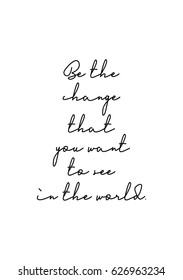 Be the
change
that
you want
to see
in the world.
shutterstock.com · 626963234